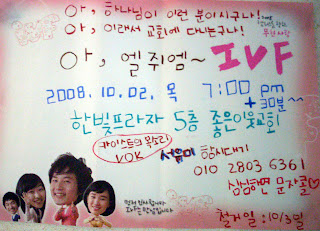 아, 하나님이 이런 분이시구나!
아, 이래서 교회에 다니는구나!
아, 엘쥐엠~ IVF
2008. 10. 02. 목 7:00 pm
+30분~
한빛프라자 5층 좋은이웃교회
카이스트의 목소리
VOK 서윤미 항시대기
010 2803 6361
심심하면 문자콜♡
철거일 : 10/3일